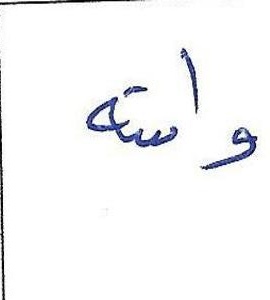 واسته